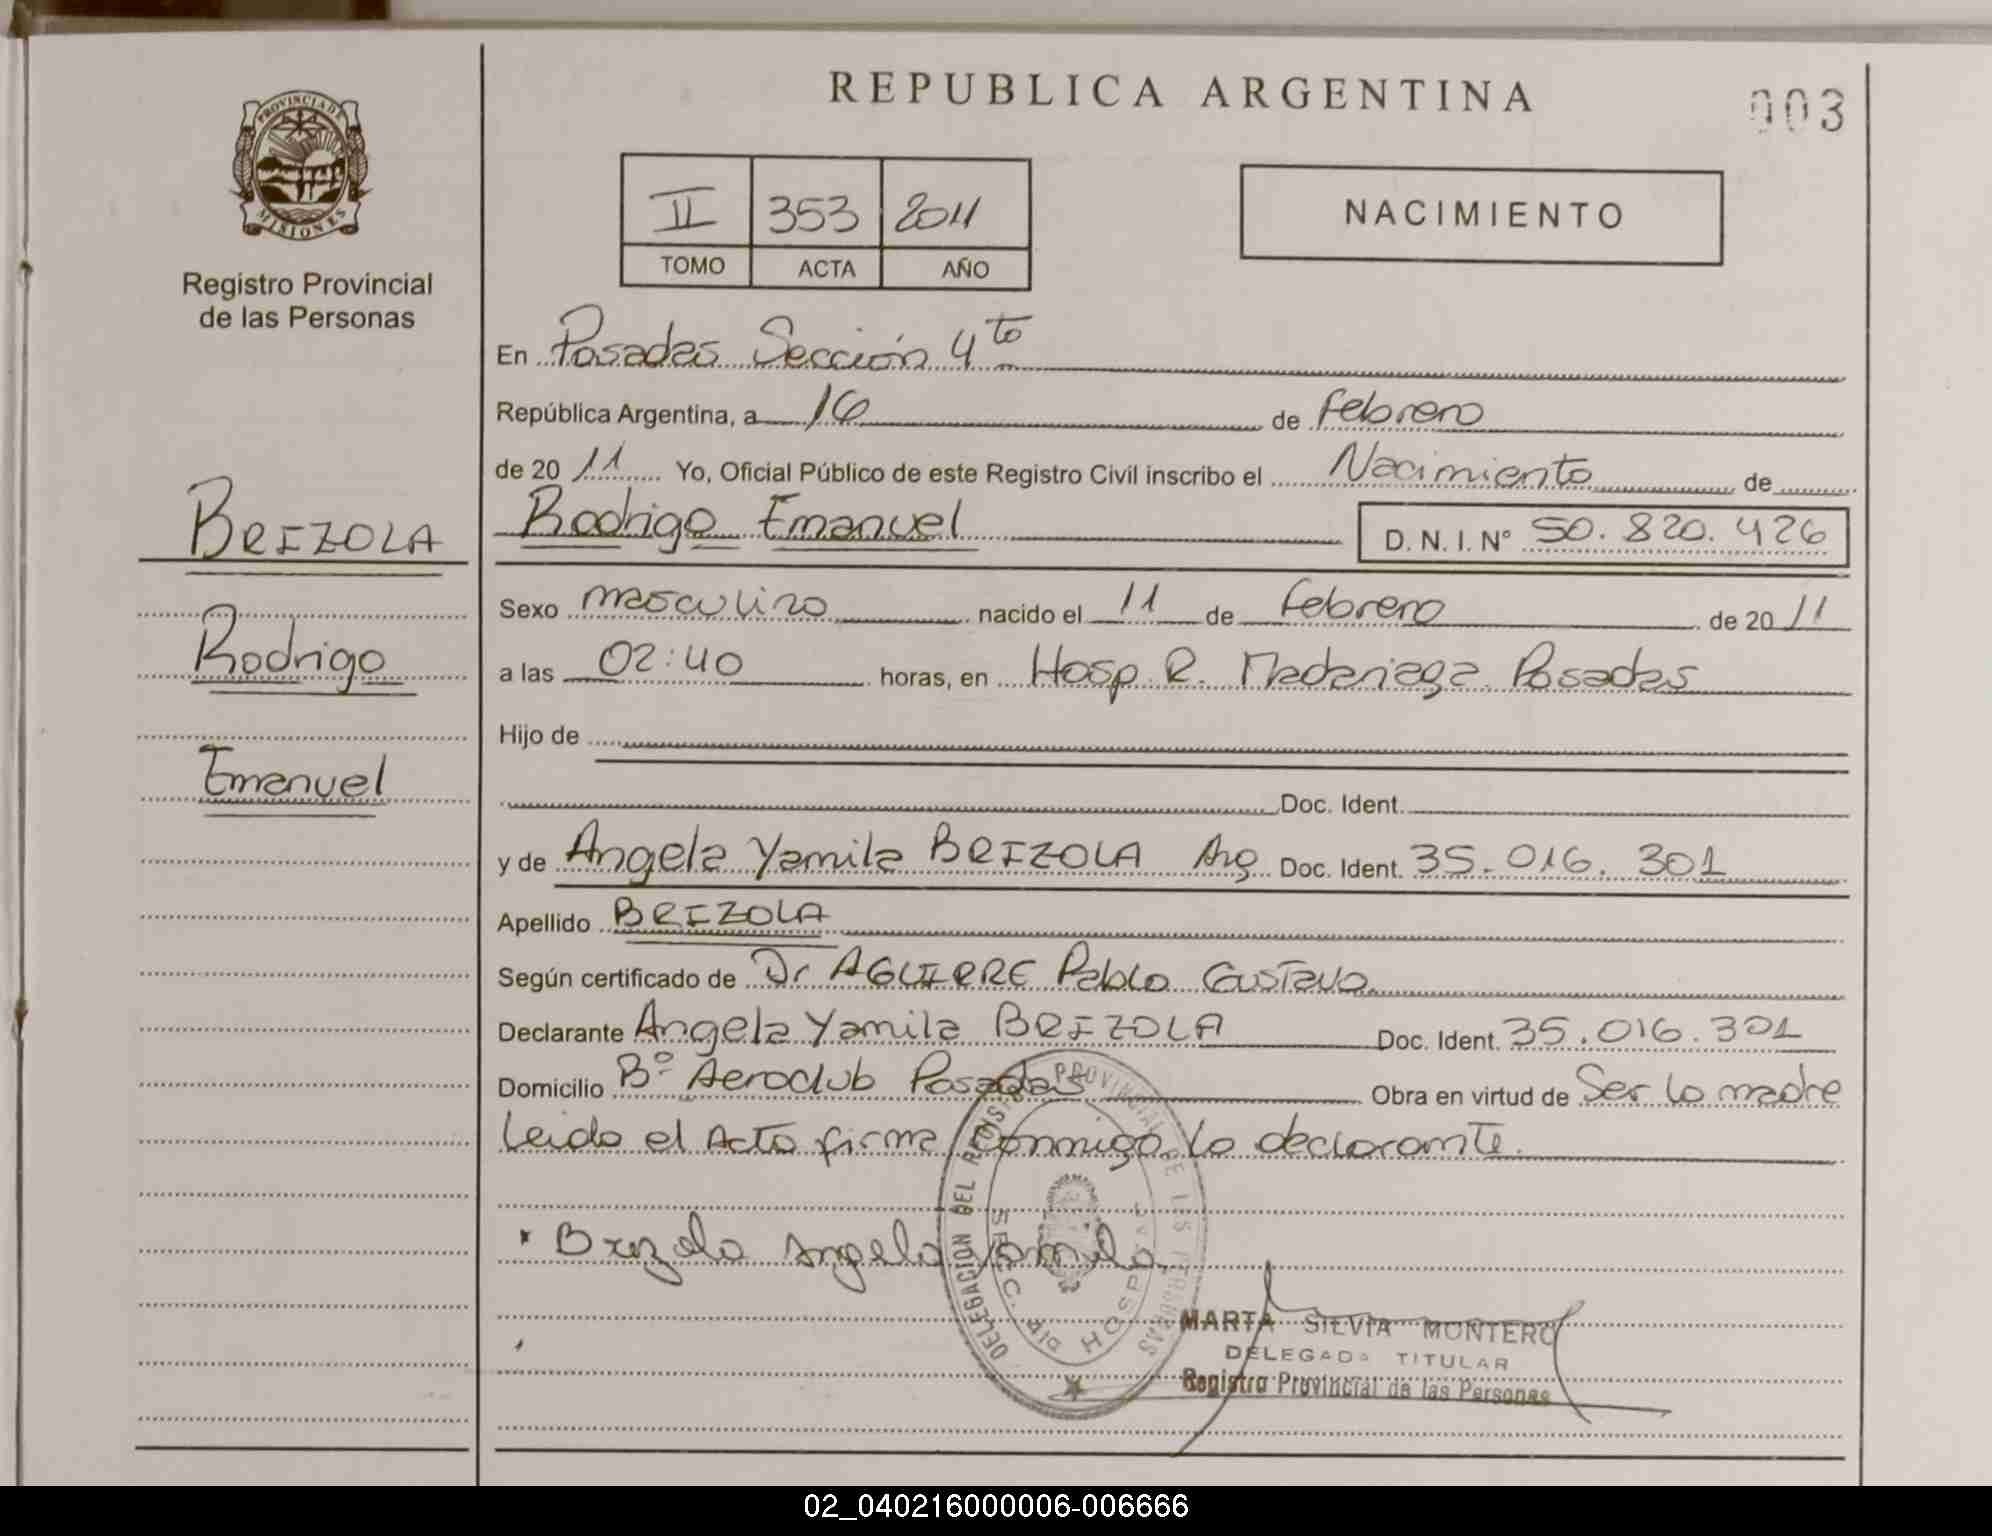 REPUBLICA ARGENTINA
003
PROVINCIA DE
MISIONES
Registro Provincial
de las Personas
II 353 2011
TOMO ACTA AÑO
NACIMIENTO
En Posadas Sección 4to
República Argentina, a 16 de Febrero
de 2011 Yo, Oficial Público de este Registro Civil inscribo el Nacimiento de
Rodrigo Emanuel D. N. I. N° 50.820.426
BRIZOLA
Rodrigo
Emanuel
Sexo masculino nacido el 11 de Febrero de 2011
a las 02:40 horas, en Hosp. R. Madariaga Posadas
Hijo de
Doc. Ident.
y de Angela Yamila BRIZOLA Arg Doc. Ident. 35.016.301
Apellido BRIZOLA
Según certificado de Dr AGUIRRE Pablo Gustavo
Declarante Angela Yamila BRIZOLA Doc. Ident. 35.016.301
Domicilio Bº Aeroclub Posadas Obra en virtud de Ser la madre
Leido el Acta firma conmigo la declarante.
Brizola Angela Yamila
DELEGACION DEL REGISTRO PROVINCIAL DE LAS PERSONAS
SECC. HOSPITAL
MARTA SILVIA MONTERO
DELEGADA TITULAR
Registro Provincial de las Personas
02_040216000006-006666